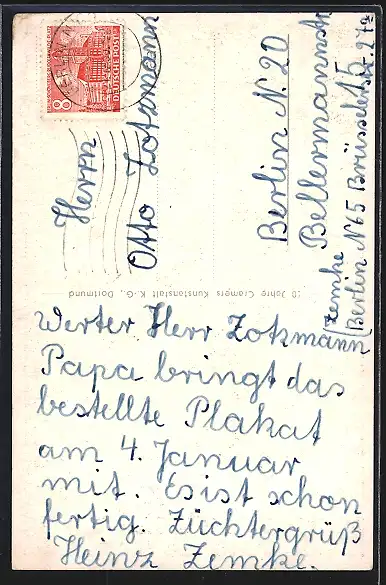 Herrn
Otto Zotzmann
Berlin N. 20
Bellermannstr. 15
Zemke
Berlin N65 Brüsselerstr. 27a
50 Jahre Cramers Kunstanstalt K.-G., Dortmund
8
DEUTSCHE POST
BERLIN
Werter Herr Zotzmann
Papa bringt das
bestellte Plakat
am 4. Januar
mit. Es ist schon
fertig. Züchtergrüß
Heinz Zemke.